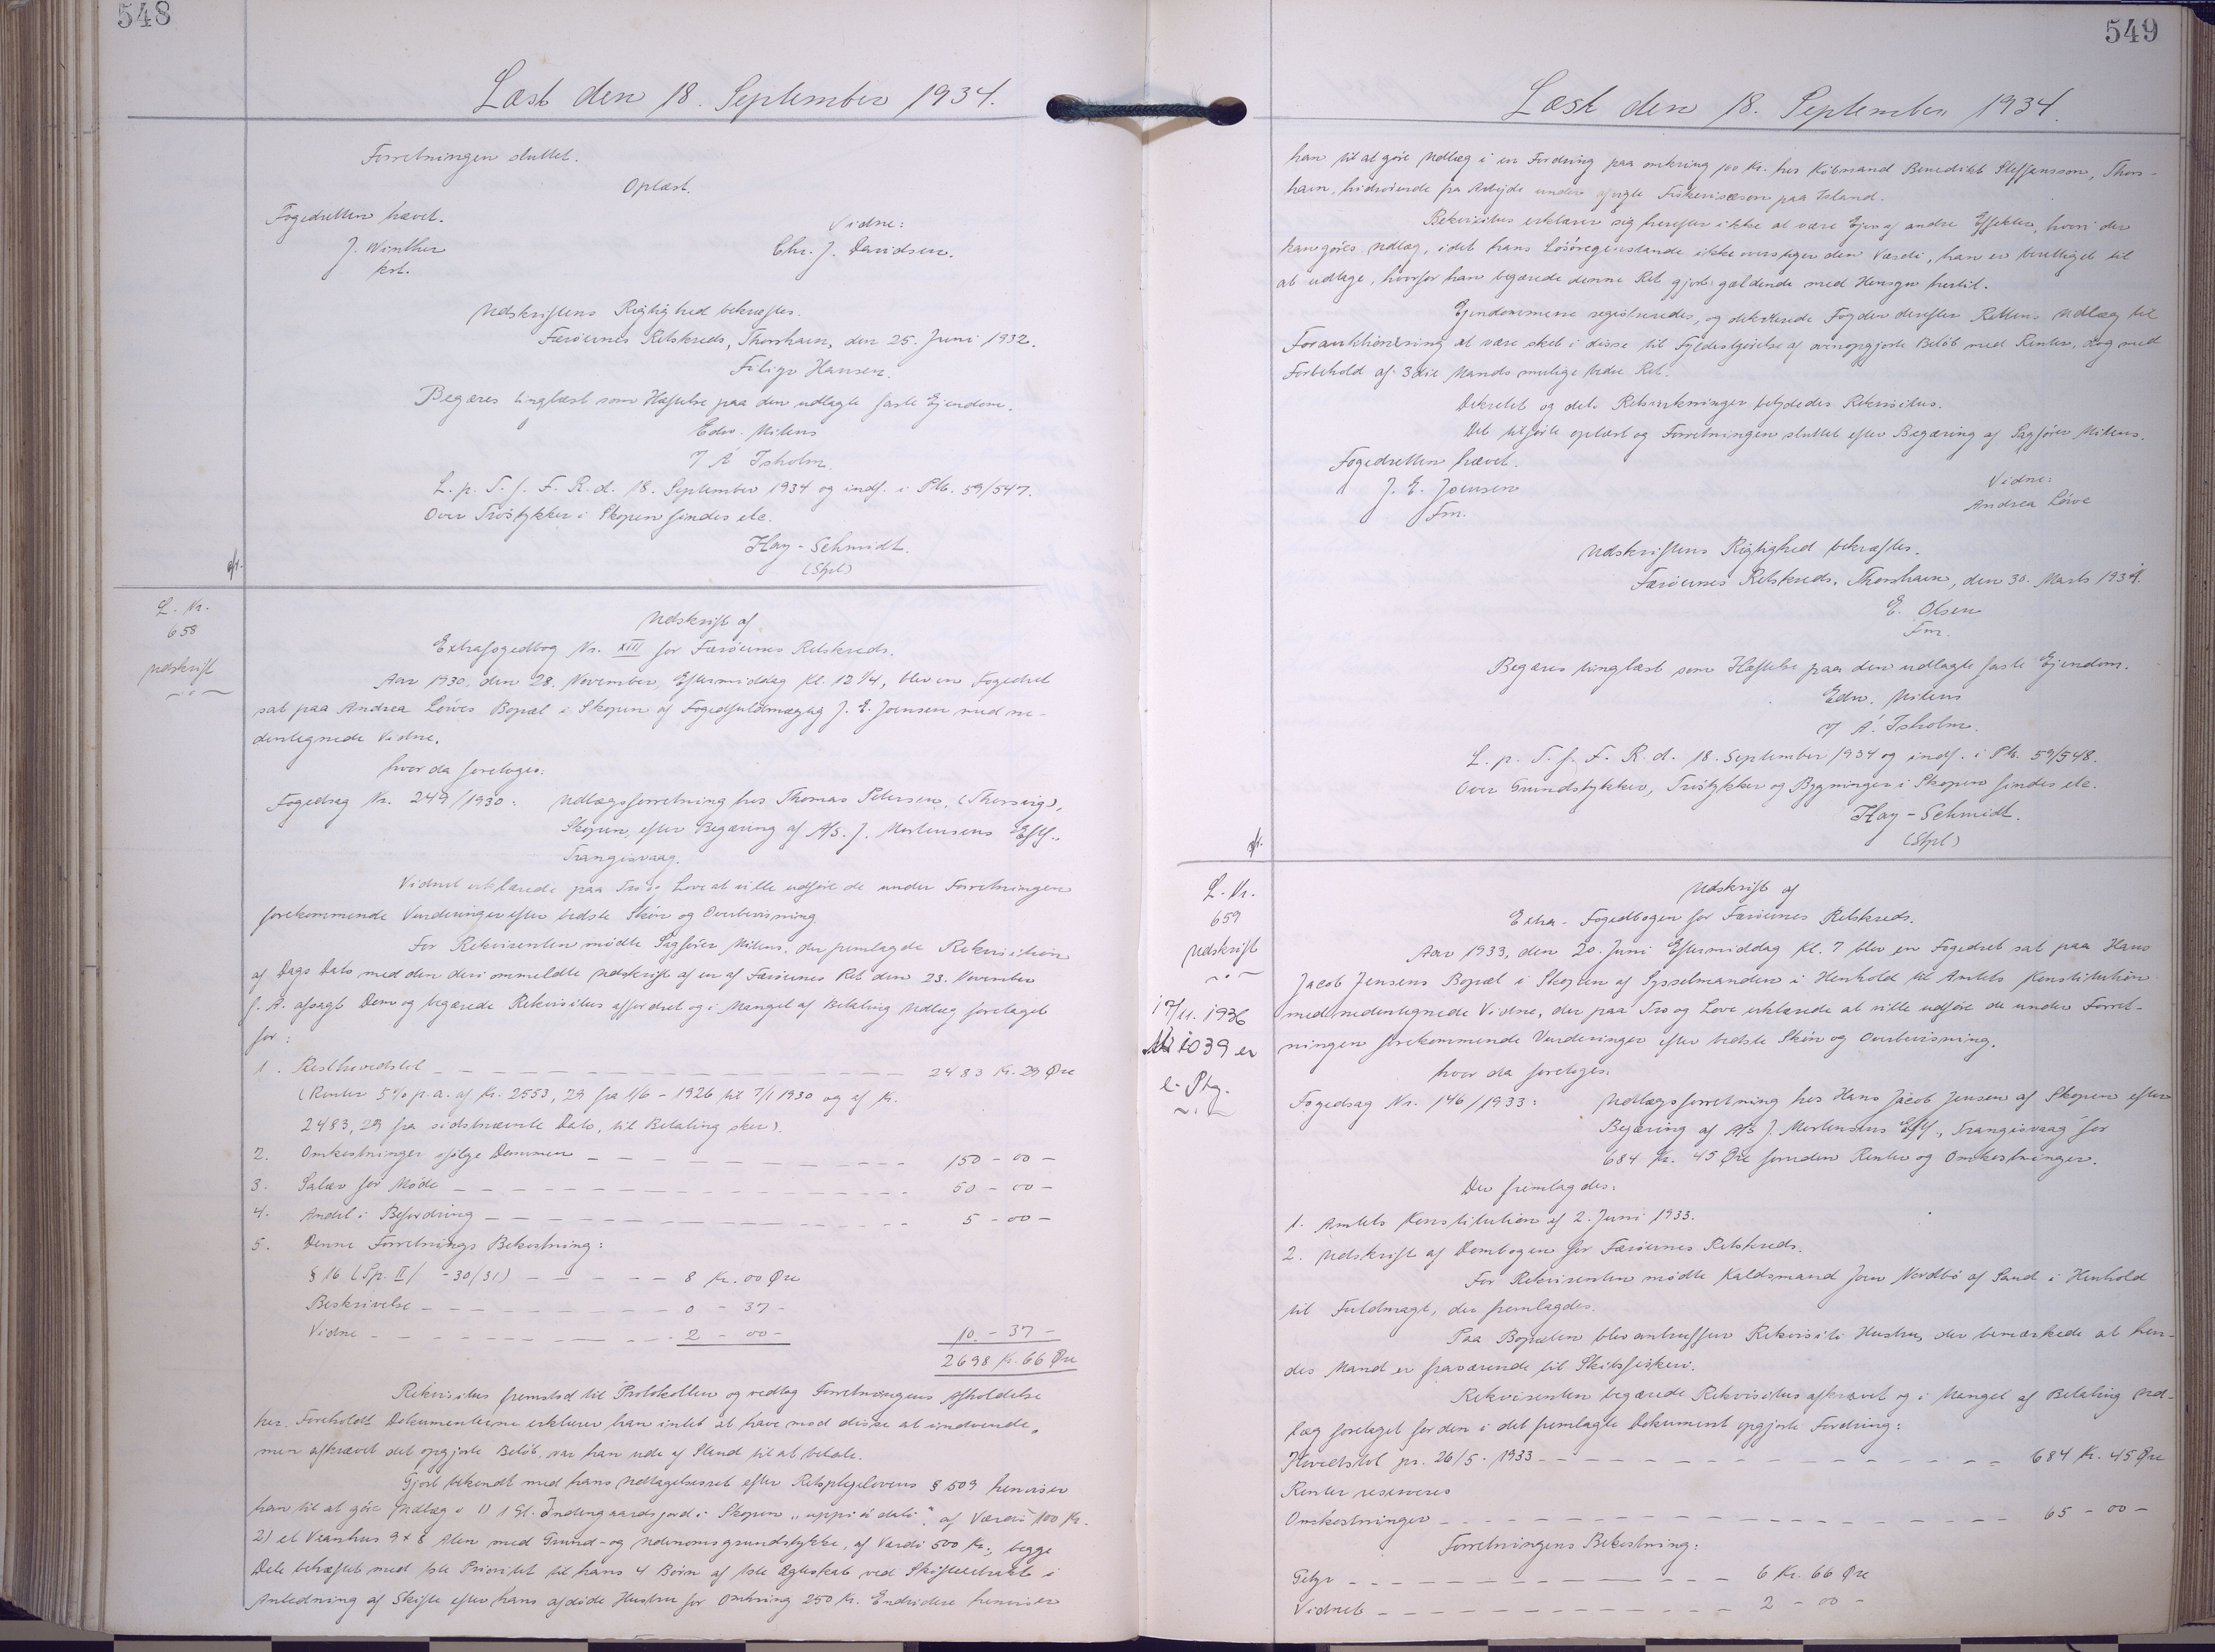 548
Læst den 18. September 1934.
Forretningen sluttet.
Oplæst.
Fogedretten hævet.
Vidne:
J. Winther
Chr. J. Davidsen.
kst.
Udskriftens Rigtighed bekræftes.
Færöernes Retskreds, Thorshavn, den 25. Juni 1932.
Filip Hansen.
Begæres tinglæst som Hæftelse paa den udlagte faste Ejendom.
Edw. Mitens
/ Á Isholm
L. p. T. f. F. R. d. 18. September 1934 og indf. i Ptb. 59/547.
Over Tröstykker i Skopun findes etc.
Hay-Schmidt.
(Stpl)
L. Nr.
658
Udskrift
Udskrift af
Extrafogedbog Nr. XIII for Færöernes Retskreds.
Aar 1930, den 28. November, Eftermiddag Kl. 12 1/4, blev en Fogedret
sat paa Andrea Löwes Bopæl i Skopun af Fogedfuldmægtig J. E. Joensen med ne-
dentegnede Vidne,
hvor da foretoges:
Fogedsag Nr. 249/1930: Udlægsforretning hos Thomas Petersen, (Thorsvig),
Skopun, efter Begæring af A/S. J. Mortensens Eftf.,
Trangisvaag.
Vidnet erklærede paa Tro og Love at ville udföre de under Forretningen
forekommende Vurderinger efter bedste Skön og Overbevisning.
For Rekvirenten mödte Sagförer Mitens, der fremlagde Rekvisition
af Dags Dato med den deri ommeldte Udskrift af en af Færöernes Ret den 23. November
f. A. afsagt Dom og begærede Rekvisitus affordret og i Mangel af Betaling Udlæg foretaget
for:
1. Resthovedstol – – – 2483 Kr. 29 Øre
(Renter 5% p.a. af Kr. 2553,29 fra 1/6 – 1926 til 7/1 1930 og af Kr.
2483,29 fra sidstnævnte Dato, til Betaling sker).
2. Omkostninger ifölge Dommen – – – 150 – 00 –
3. Salær for Möde – – – 50 – 00 –
4. Andel i Befordring – – – 5 – 00 –
5. Denne Forretnings Bekostning:
§ 16 (Sp. II/ -30/31) – – – 8 Kr. 00 Øre
Beskrivelse – – – 0 – 37 –
Vidne – – – 2 – 00 – 10 – 37 –
2698 Kr. 66 Øre
Rekvisitus fremstod til Protokollen og vedtog Forretningens Afholdelse
her. Foreholdt Dokumenterne erklærer han intet at have mod disse at indvende,
men afkrævet det opgjorte Belöb, var han ude af Stand til at betale.
Gjort bekendt med hans Udtagelsesret efter Retsplejelovens § 509 henviser
han til at göre Udlæg i 1) 1 Gl. Indengaardsjord i Skopun "uppi á dali", af Værdi 100 Kr.
2) et Vaanhus 9 x 8 Alen med Grund- og Udenomsgrundstykke, af Værdi 500 Kr., begge
Dele behæftet med 1ste Prioritet til hans 4 Börn af 1ste Ægteskab ved Skifteextrakt i
Anledning af Skifte efter hans afdöde Hustru for omkring 250 Kr. Endvidere henviser
549
Læst den 18. September 1934.
han til at göre Udlæg i en Fordring paa omkring 100 Kr. hos Köbmand Benedikt Steffansson, Thors-
havn, hidrörende fra Arbejde under Fiskerisæson paa Island.
Rekvisitus erklærer sig herefter ikke at være Ejer af andre Effekter, hvori der
kan göres Udlæg, idet hans Lösöregenstande ikke overstiger den Værdi, han er berettiget til
at udtage, hvorfor han begærede denne Ret gjort gældende med Hensyn hertil.
Ejendommene registreredes, og dekreterede Fogden derefter Rettens Udlæg til
Forauktionering at være sket i disse til Fyldestgörelse af ovenopgjorte Belöb med Renter, dog med
Forbehold af 3die Mands mulige bedre Ret.
Dekretet og dets Retsvirkninger betydedes Rekvisitus.
Det tilförte oplæst og Forretningen sluttet efter Begæring af Sagförer Mitens.
Fogedretten hævet.
J. E. Joensen
Vidne:
Fm.
Andrea Löwe
Udskriftens Rigtighed bekræftes.
Færöernes Retskreds, Thorshavn, den 30. Marts 1934.
E. Olsen
Fm.
Begæres tinglæst som Hæftelse paa den udlagte faste Ejendom.
Edw. Mitens
v/ Á. Isholm.
L. p. T. f. F. R. d. 18. September 1934 og indf. i Ptb. 59/548.
Over Grundstykker, Tröstykker og Bygninger i Skopun findes etc.
Hay-Schmidt.
(Stpl)
L. Nr.
659
Udskrift
17/11. 1936
1039 er
Udskrift af
Extra-Fogedbogen for Færöernes Retskreds.
Aar 1933, den 20. Juni Eftermiddag Kl. 7 blev en Fogedret sat paa Hans
Jacob Jensens Bopæl i Skopun af Sysselmanden i Henhold til Amtets Konstitution
med nedentegnede Vidne, der paa Tro og Love erklærede at ville udföre de under Forret-
ningen forekommende Vurderinger efter bedste Skön og Overbevisning,
hvor da foretoges:
Fogedsag Nr. 146/1933: Udlægsforretning hos Hans Jacob Jensen af Skopun efter
Begæring af A/S J. Mortensens Eftf., Trangisvaag for
684 Kr. 45 Øre foruden Renter og Omkostninger.
Der fremlagdes:
1. Amtets Konstitution af 2. Juni 1933.
2. Udskrift af Dombogen for Færöernes Retskreds.
For Rekvirenten mödte Kaldsmand Joen Nordbö af Sand i Henhold
til Fuldmagt, der fremlagdes.
Paa Bopælen blev antruffen Rekvisiti Hustru, der bemærkede at hen-
des Mand er fraværende til Skibsfiskeri.
Rekvirenten begærede Rekvisitus afkrævet og i Mangel af Betaling Ud-
læg foretaget for den i det fremlagte Dokument opgjorte Fordring:
Hovedstol pr. 26/5-1933 – – – 684 Kr. 45 Øre
Renter reserveres
Omkostninger – – – 65 – 00 –
Forretningens Bekostning:
Gebyr – – – 6 Kr. 66 Øre
Vidnet – – – 2 – 00 –